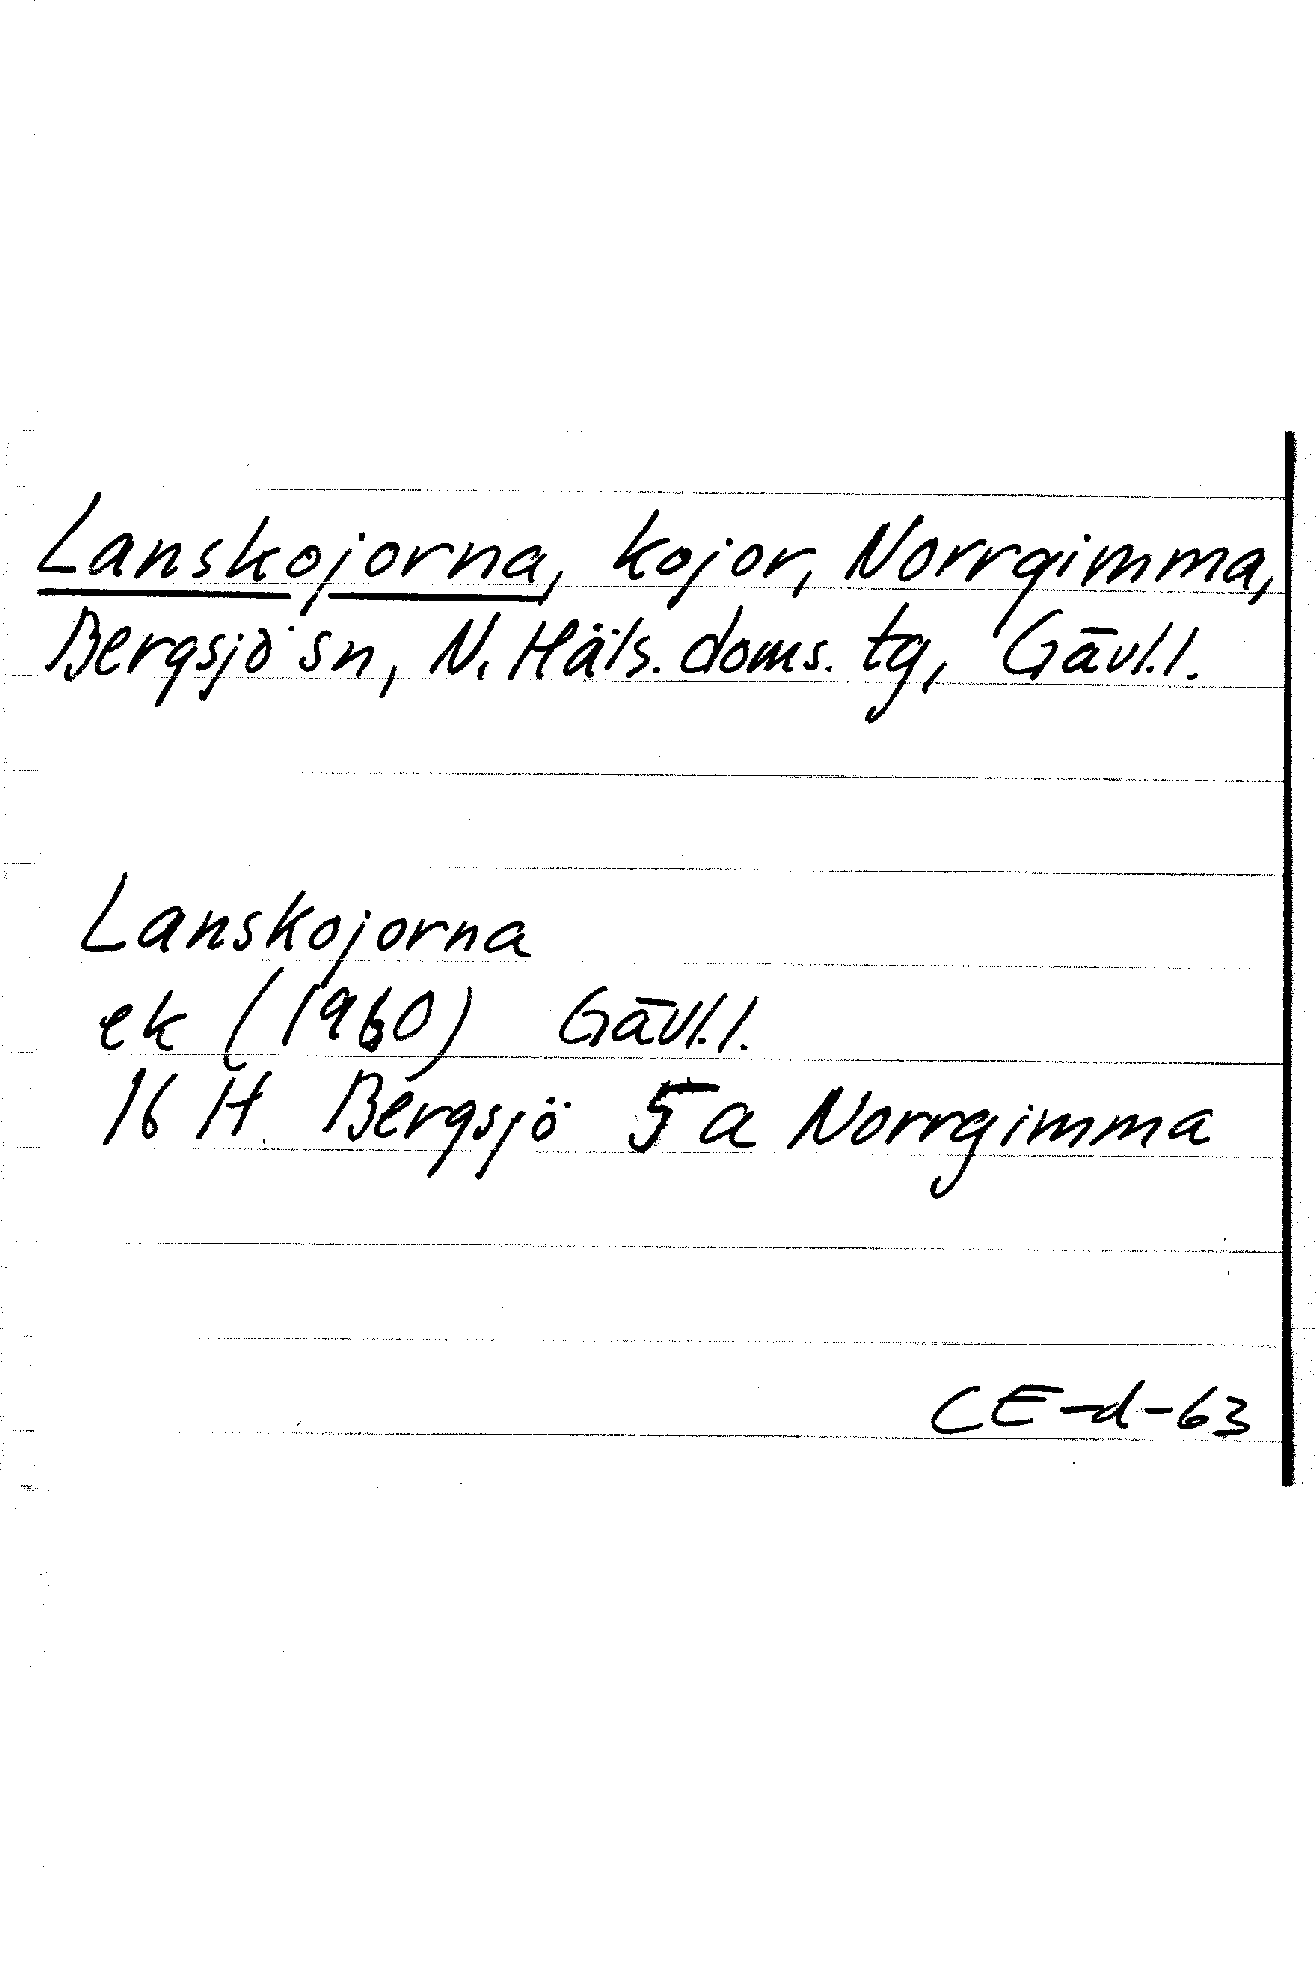 Lanskojorna, kojor, Norrgimma,
Bergsjö sn, N. Häls. doms. tg, Gävl.l.
Lanskojorna
ek (1960) Gävl.l.
16 H Bergsjö 5a Norrgimma
CE-d-63